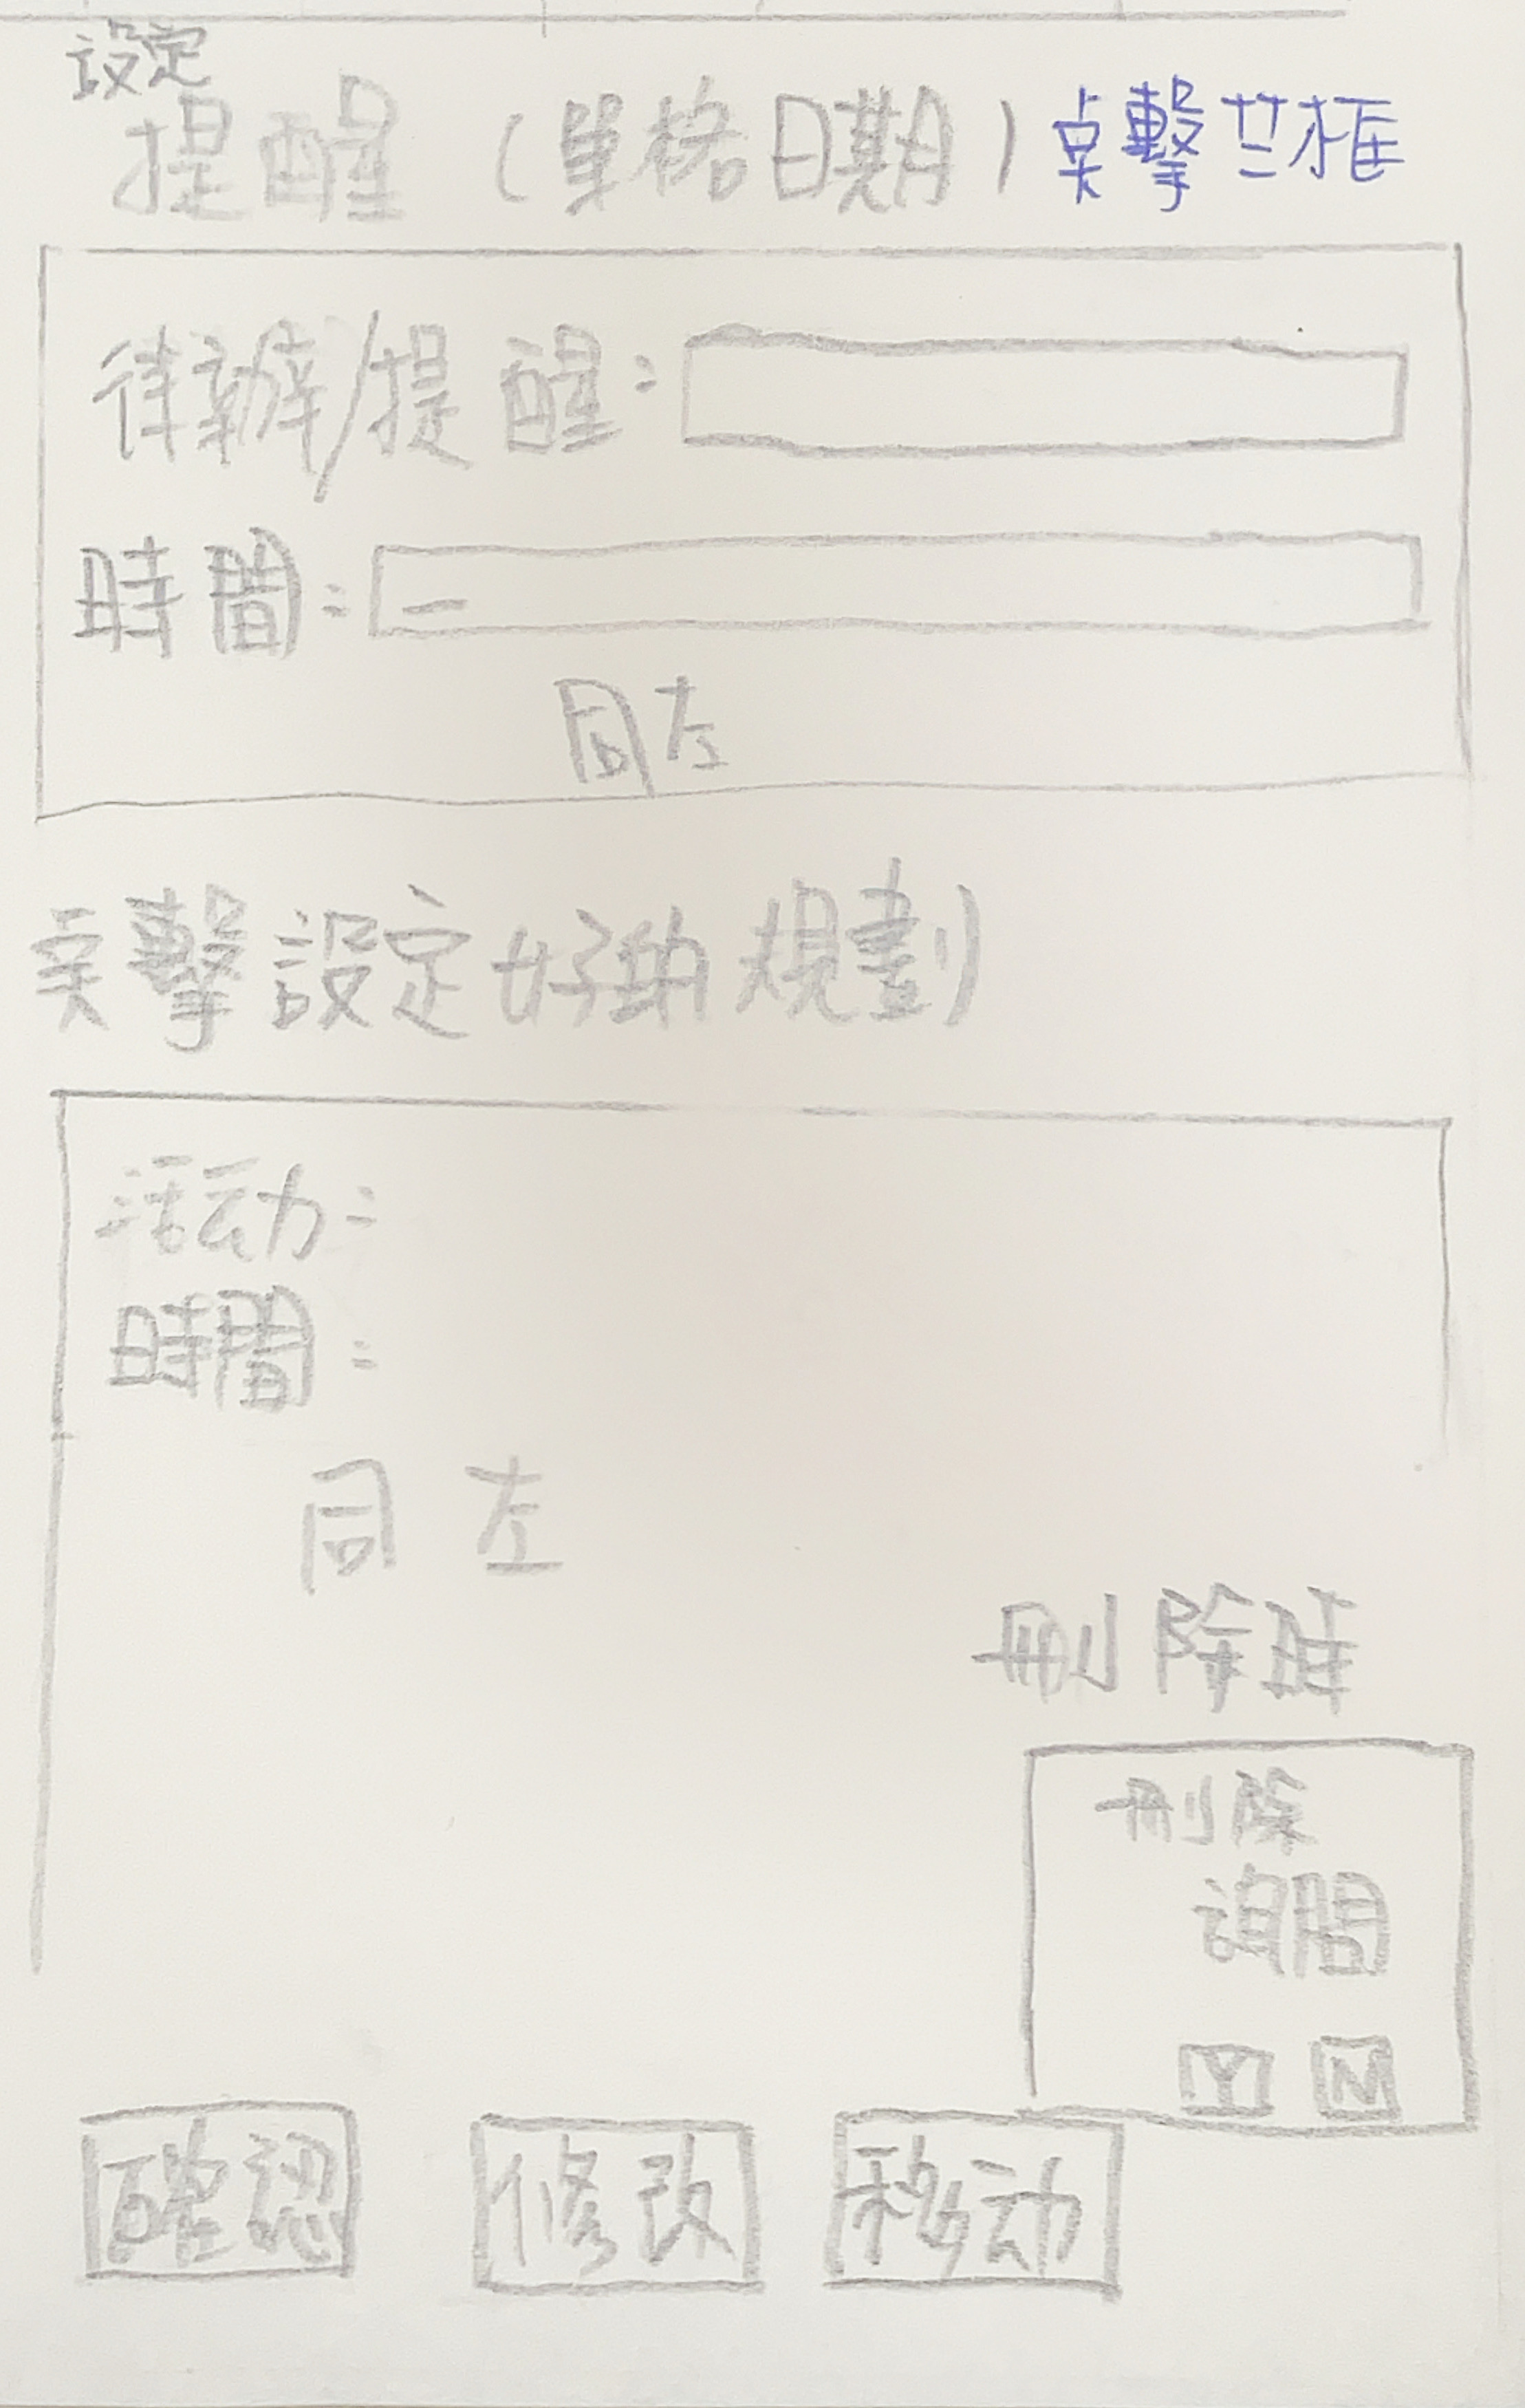 設定
提醒（單格日期）点擊共框
待辦/提醒：
時間：
同左
点擊設定好的規劃
活动：
時間：
同左
刪除時
刪除
詢問
Y N
確認 修改 移动